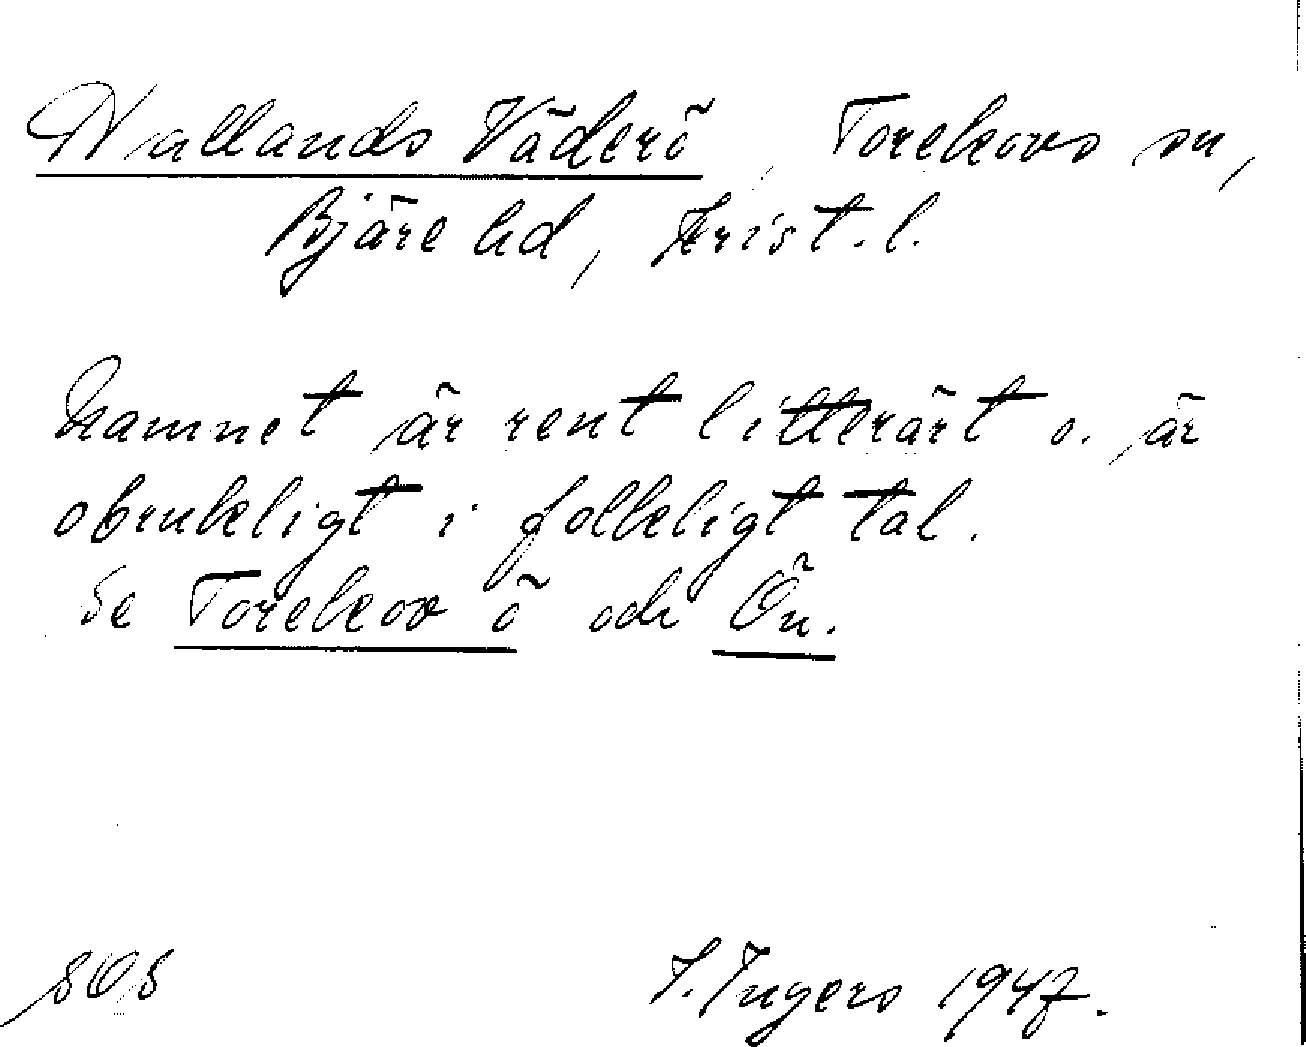 Hallands Väderö, Torekovs sn,
Bjäre hd, Krist. l.
Namnet är rent litterärt o. är
obrukligt i folkligt tal.
Se Torekov ö och Ön.
SOS
I. Ingers 1947.